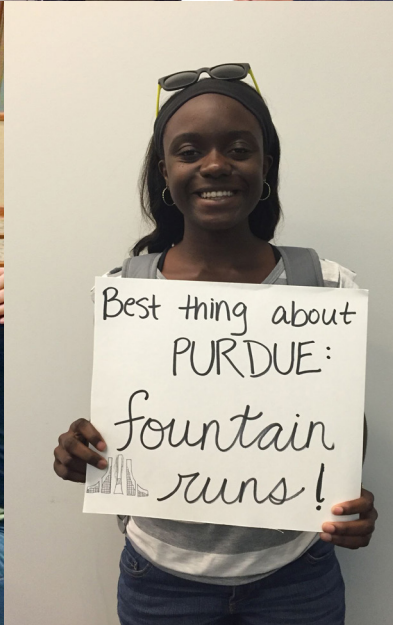 Best thing about
PURDUE:
fountain
runs!